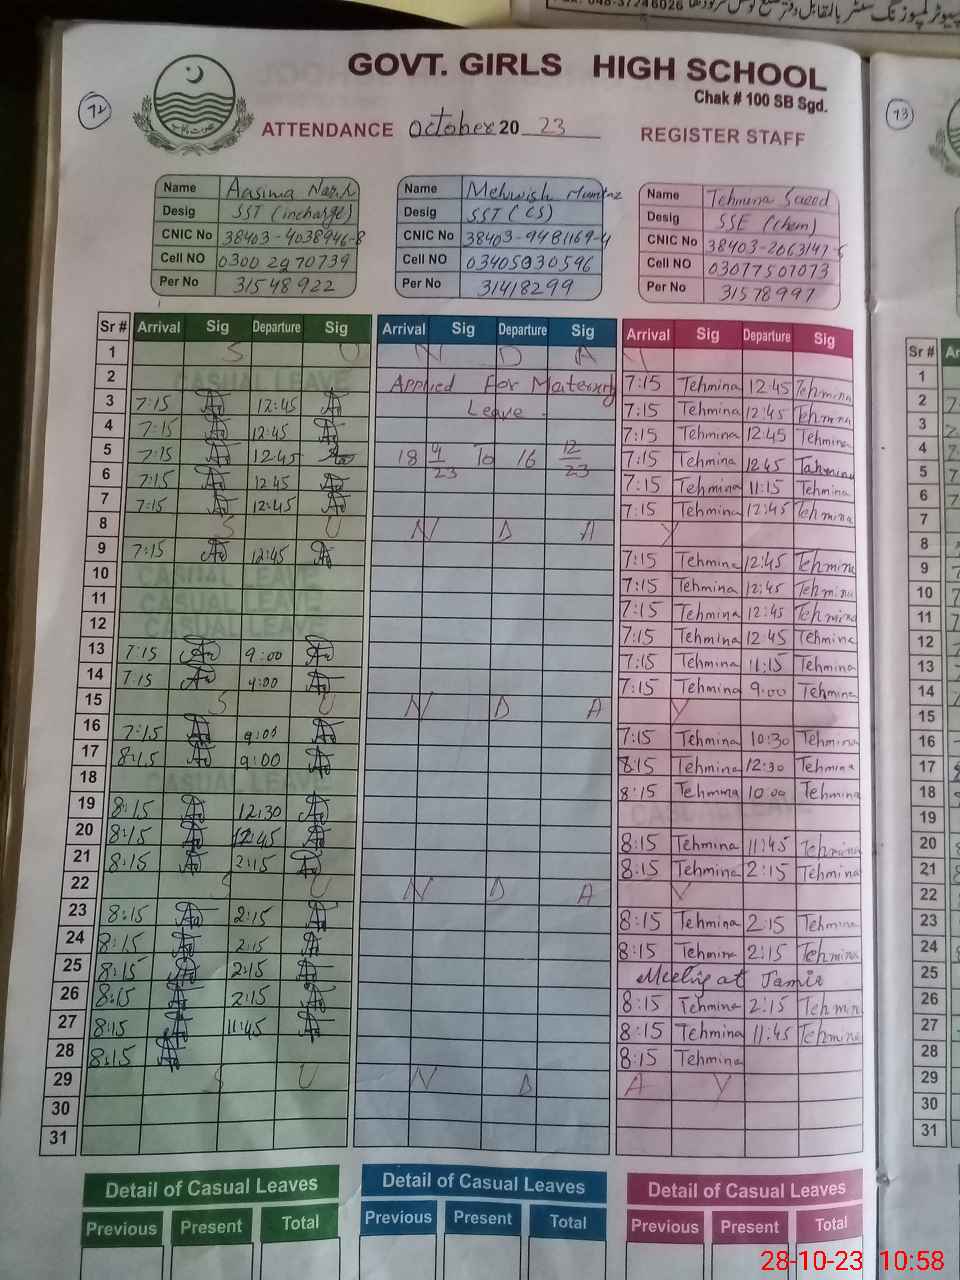 FAX: 048-37246026
GOVT. GIRLS HIGH SCHOOL
Chak # 100 SB Sgd.
72
ATTENDANCE October 2023 REGISTER STAFF
73
Name Aasima Name Mehwish Mumtaz Name Tehmina Saeed
Desig SST (incharge) Desig SST (CS) Desig SSE (Chem)
CNIC No 38403-4038946-8 CNIC No 38403-9481169-4 CNIC No 38403-2063147-6
Cell NO 0300 2970739 Cell NO 03405030596 Cell NO 03077507073
Per No 31548922 Per No 31418299 Per No 31578997
Sr # Arrival Sig Departure Sig Arrival Sig Departure Sig Arrival Sig Departure Sig
1 S U N D A Y
2 CASUAL LEAVE Applied For Maternity 7:15 Tehmina 12:45 Tehmina
3 7:15 12:45 Leave 7:15 Tehmina 12:45 Tehmina
4 7:15 12:45 7:15 Tehmina 12:45 Tehmina
5 7:15 12:45 18 4/23 To 16 12/23 7:15 Tehmina 12:45 Tehmina
6 7:15 12:45 7:15 Tehmina 11:15 Tehmina
7 7:15 12:45 7:15 Tehmina 12:45 Tehmina
8 S U N D A Y
9 7:15 12:45 7:15 Tehmina 12:45 Tehmina
10 CASUAL LEAVE 7:15 Tehmina 12:45 Tehmina
11 CASUAL LEAVE 7:15 Tehmina 12:45 Tehmina
12 CASUAL LEAVE 7:15 Tehmina 12:45 Tehmina
13 7:15 9:00 7:15 Tehmina 11:15 Tehmina
14 7:15 9:00 7:15 Tehmina 9:00 Tehmina
15 S U N D A Y
16 7:15 9:00 7:15 Tehmina 10:30 Tehmina
17 8:15 9:00 8:15 Tehmina 12:30 Tehmina
18 CASUAL LEAVE 8:15 Tehmina 10:00 Tehmina
19 8:15 12:30 CASUAL LEAVE
20 8:15 12:45 8:15 Tehmina 11:45 Tehmina
21 8:15 2:15 8:15 Tehmina 2:15 Tehmina
22 S U N D A Y
23 8:15 2:15 8:15 Tehmina 2:15 Tehmina
24 8:15 2:15 8:15 Tehmina 2:15 Tehmina
25 8:15 2:15 Meeting at
26 8:15 2:15 8:15 Tehmina 2:15 Tehmina
27 8:15 11:45 8:15 Tehmina 11:45 Tehmina
28 8:15 8:15 Tehmina
29 S U N D A Y
30
31
Detail of Casual Leaves Detail of Casual Leaves Detail of Casual Leaves
Previous Present Total Previous Present Total Previous Present Total
Sr #
1
2
3
4
5
6
7
8
9
10
11
12
13
14
15
16
17
18
19
20
21
22
23
24
25
26
27
28
29
30
31
28-10-23 10:58